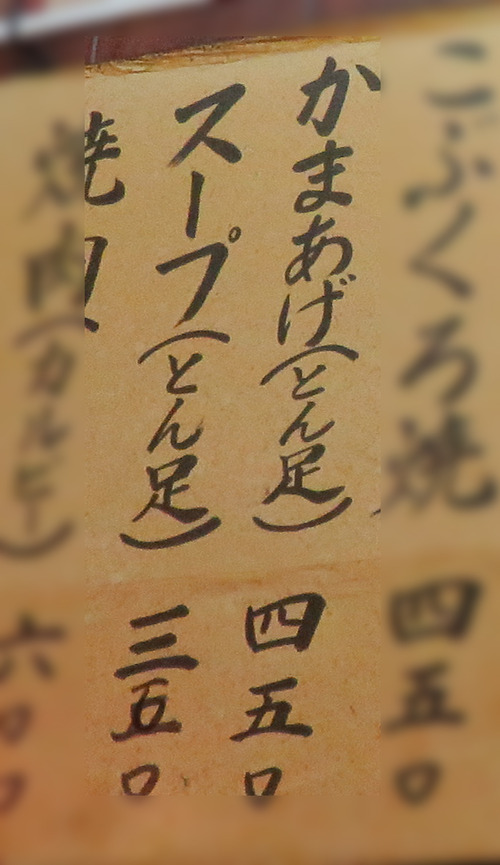 こぶくろ焼 四五〇
かまあげ(とん足) 四五〇
スープ(とん足) 三五〇
焼肉(カルビー) 六〇〇